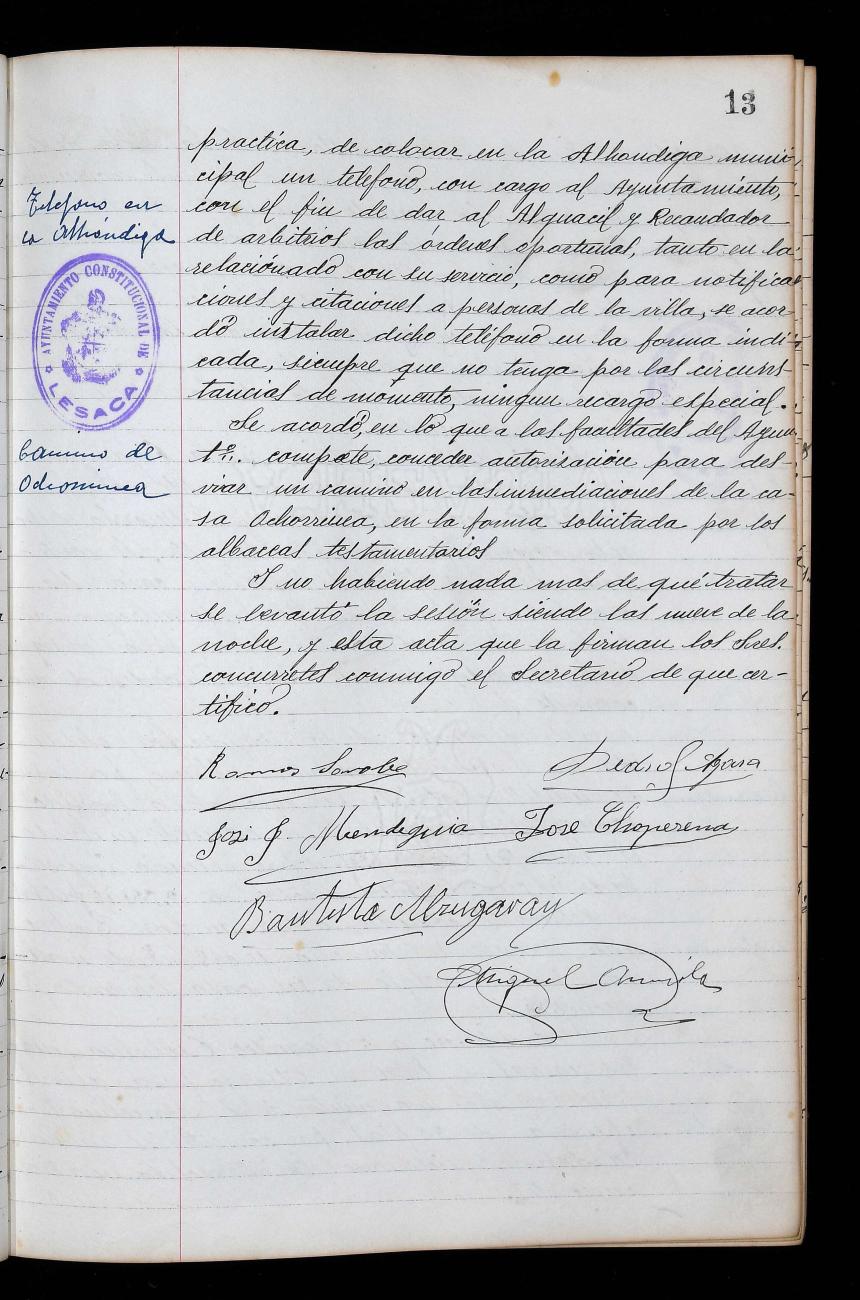 13
practica, de colocar en la Alhondiga muni-
cipal un telefono, con cargo al Ayuntamiento,
con el fin de dar al Alguacil y Recaudador
de arbitrios las órdenes oportunas, tanto en lo
relacionado con su servicio, como para notifica-
ciones y citaciones a personas de la villa, se acor-
dó instalar dicho teléfono en la forma indi-
cada, siempre que no tenga por las circuns-
tancias de momento, ningun recargo especial.
Telefono en
la Alhóndiga
AYUNTAMIENTO CONSTITUCIONAL DE
LESACA
Se acordó, en lo que a las facultades del Ayun-
tº. compete, conceder autorisación para des-
viar un camino en las inmediaciones de la ca-
sa Ochorrinea, en la forma solicitada por los
albaceas testamentarios
Camino de
Y no habiendo nada mas de qué tratar
se levantó la sesión siendo las nueve de la
noche, y esta acta que la firman los Sres.
concurretes conmigo el Secretario de que cer-
tifico.
Ramos
Pedro
José J. Mendeguia
José Choperena
Bautista
Miguel